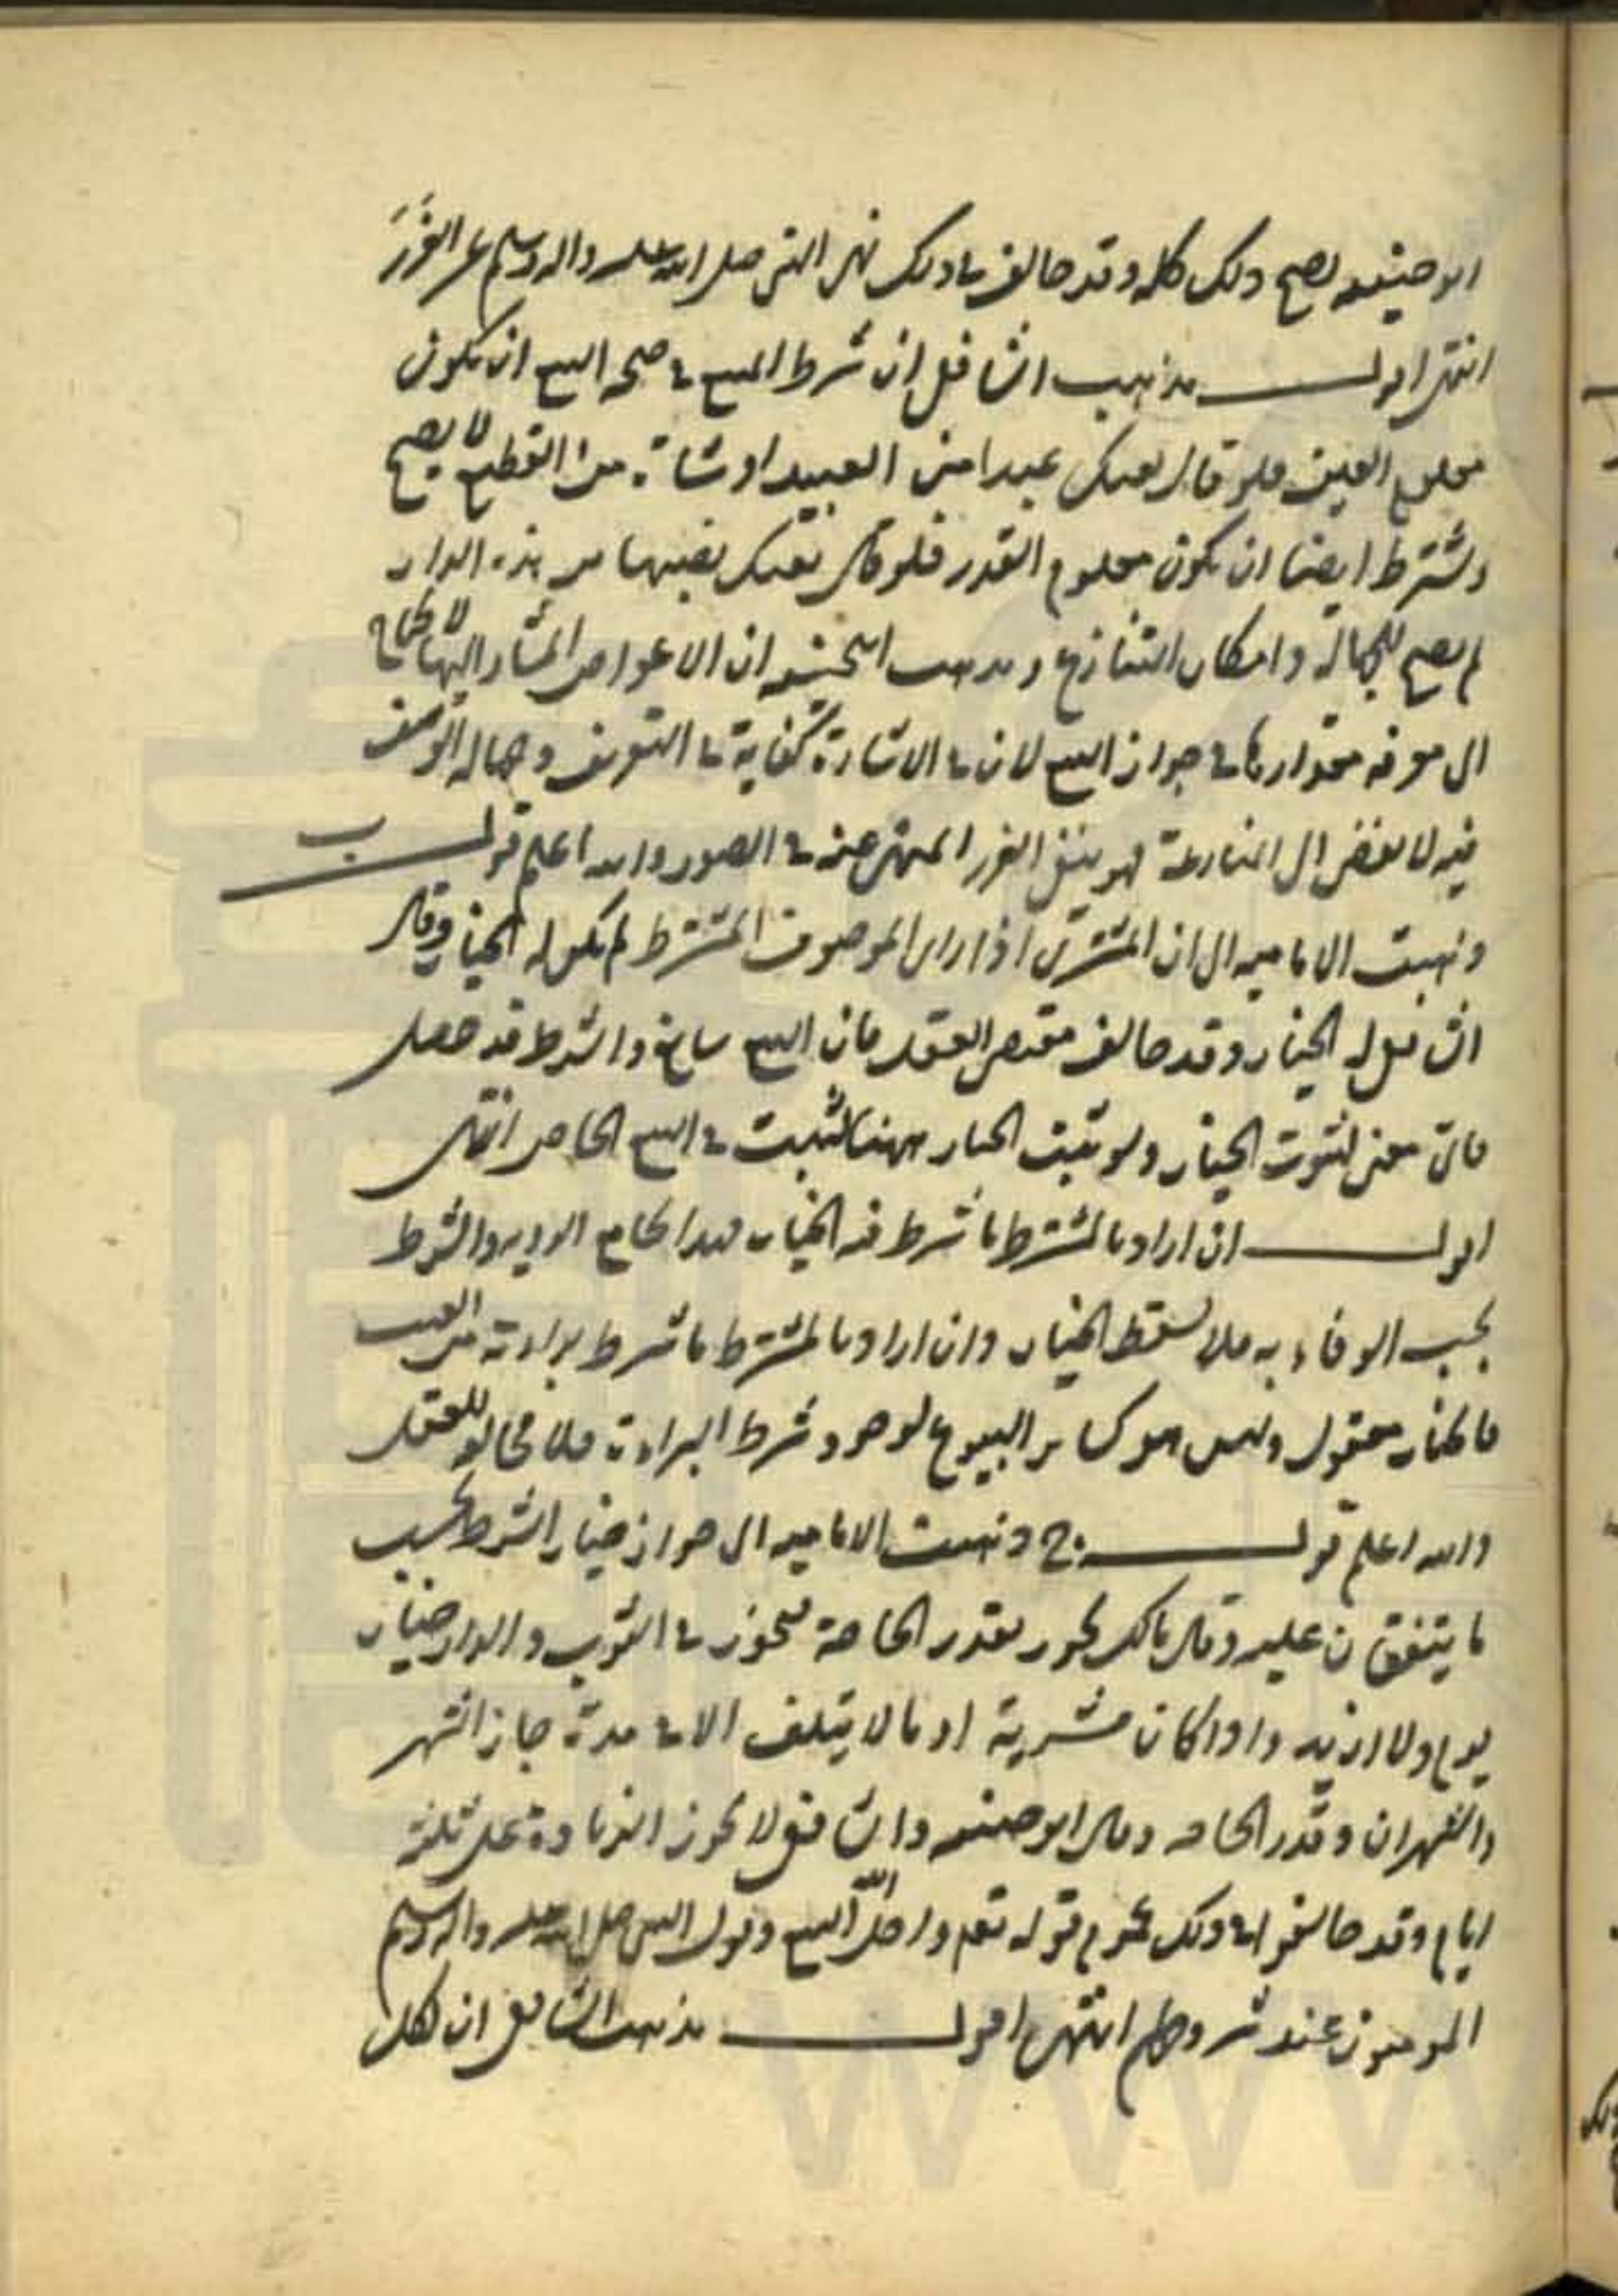 ابو حنيفه يصح ذلك كله وقد خالف في ذلك نهى النبى صلى الله عليه واله وسلم عن الغرر
انتهى اقول مذهب الشافعى ان شرط المبيع في صحه البيع ان يكون
معلوم العين فلو قال بعتك عبدا من العبيد او شاة من القطيع لا يصح
ويشترط ايضا ان يكون معلوم القدر فلو قال بعتك نصيبها من هذه الدار
لم يصح للجهالة وامكان التنازع ومذهب ابيحنيفه ان الاعواض المشار اليها لا يحتاج
الى معرفه مقدارها في جواز البيع لان في الاشارة كفاية في التعريف وجهالة الوصف
فيه لا تفضى الى المنازعة فهو ينفى الغرر المنهى عنه في الصور والله اعلم قوله ب
وذهبت الاماميه الى ان المشترى اذا راى الموصوف المشترط لم يكن له الخيار وقال
الشافعى له الخيار وقد خالف مقتضى العقد فان البيع سايغ والشرط قد حصل
فاى معنى لثبوت الخيار ولو ثبت الخيار ههنا لثبت في البيع الحاضر انتهى
اقول ان اراد بالمشترط ما شرط فيه الخيار فهذا الرويه والشرط
يجب الوفاء به فلا يسقط الخيار وان اراد بالمشترط ما شرط براءته من العيب
فالخيار معقول وليس هو كساير البيوع لوجود شرط البراءة فلا مخالفه للعقد
والله اعلم قوله ج وذهبت الاماميه الى جواز خيار الشرط بحسب
ما يتفقان عليه وقال مالك يجوز بقدر الحاجة فيجوز في الثوب والدار خيار
يوم ولا ازيد واذا كان قرية او ما لا يتلف الا في مدة جاز الشهر
والشهران وقدر الحاجه وقال ابو حنيفه والشافعى لا يجوز الزيادة على ثلثة
ايام وقد خالفوا في ذلك عموم قوله تعم واحل الله البيع وقول النبى صلى الله عليه واله وسلم
المومنون عند شروطهم انتهى اقول مذهب الشافعى ان لكل